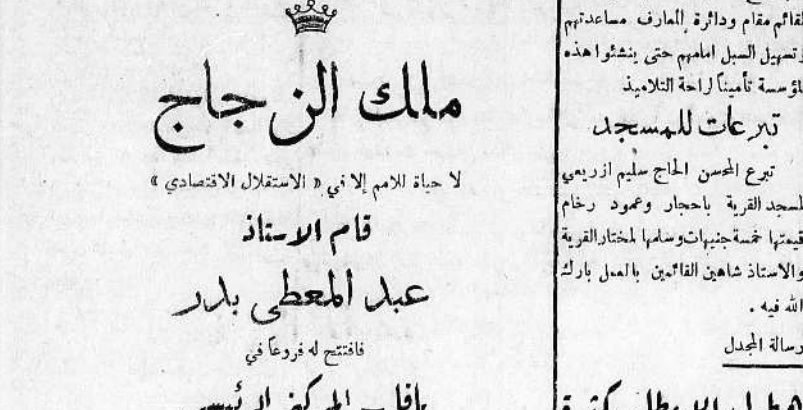 القائم مقام ودائرة المعارف مساعدتهم
وتسهيل السبل امامهم حتى ينشئوا هذه
المؤسسة تأميناً لراحة التلاميذ
تبرعات للمسجد
تبرع المحسن الحاج سليم ازريعي
لمسجد القرية باحجار وعمود رخام
قيمتها خمسة جنيهات وسلمها لمختار القرية
والاستاذ شاهين القائمين بالعمل بارك
الله فيه .
رسالة المجدل
ملك الزجاج
لا حياة للامم إلا في « الاستقلال الاقتصادي »
قام الاستاذ
عبد المعطي بدر
فافتتح له فروعاً في
يافا المركز الرئيسي